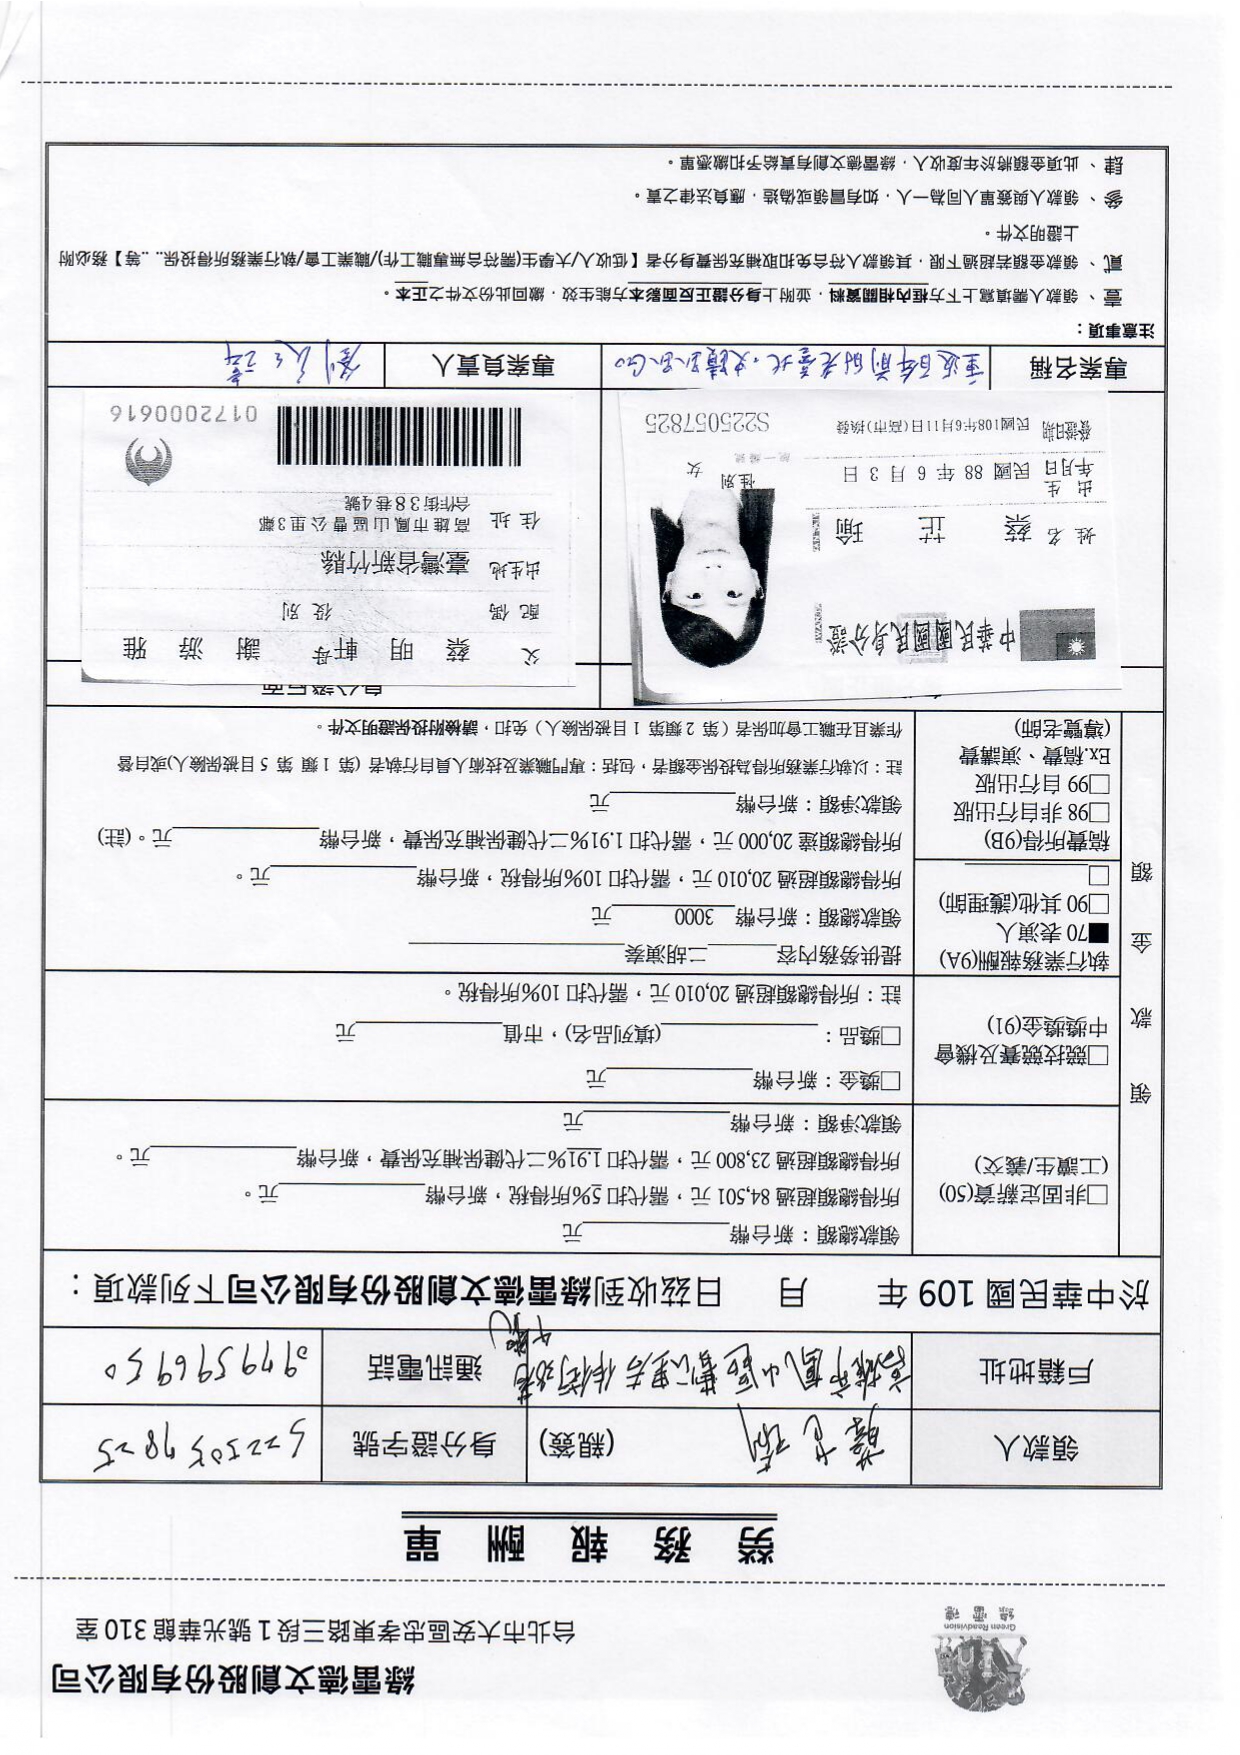 Green Readvision
綠雷德
綠雷德文創股份有限公司
台北市大安區忠孝東路三段1號光華館310室
勞務報酬單
領款人 蔡芷瑜 (親簽) 身分證字號 S225057825
戶籍地址 高雄市鳳山區曹公里合作街38巷 通訊電話 0979596950
4號
於中華民國 109 年 月 日茲收到綠雷德文創股份有限公司下列款項：
領款金額
□非固定薪資(50)
(工讀生/義交)
領款總額：新台幣____元
所得總額超過 84,501 元，需代扣 5%所得稅，新台幣____元。
所得總額超過 23,800 元，需代扣 1.91%二代健保補充保費，新台幣____元。
領款淨額：新台幣____元
□競技競賽及機會
中獎獎金(91)
□獎金：新台幣____元
□獎品：____(填列品名)，市值____元
註：所得總額超過 20,010 元，需代扣 10%所得稅。
執行業務報酬(9A)
■70 表演人
□90 其他(護理師)
□____
稿費所得(9B)
□98 非自行出版
□99 自行出版
Ex.稿費、演講費
(導覽老師)
提供勞務內容____二胡演奏____
領款總額：新台幣 3000 元
所得總額超過 20,010 元，需代扣 10%所得稅，新台幣____元。
所得總額達 20,000 元，需代扣 1.91%二代健保補充保費，新台幣____元。(註)
領款淨額：新台幣____元
註：以執行業務所得為投保金額者，包括：專門職業及技術人員自行執者 (第 1 類 第 5 目被保險人)或自營
作業且在職工會加保者（第 2 類第 1 目被保險人）免扣，請檢附投保證明文件。
身分證反面
中華民國國民身分證
姓名 蔡芷瑜
出生
年月日 民國 88 年 6 月 3 日
性別 女
統一編號
發證日期 民國108年6月11日(高市)換發
S225057825
父 蔡明軒 母 謝游雅
配偶 役別
出生地 臺灣省新竹縣
住址 高雄市鳳山區曹公里3鄰
合作街38巷4號
0172000616
專案名稱 重返百年前的老臺北．史蹟趴趴Go 專案負責人
注意事項：
壹、領款人需填寫上下方框內相關資料，並附上身分證正反面影本方能生效，繳回此份文件之正本。
貳、領款金額若超過下限，其領款人符合免扣取補充保費身分者【低收入/大學生(需符合無專職工作)/職業工會/執行業務所得投保.. ..等】務必附
上證明文件。
參、領款人與簽單人同為一人，如有冒領或偽造，應負法律之責。
肆、此項金額將於年度收入，綠雷德文創有責給予扣繳憑單。